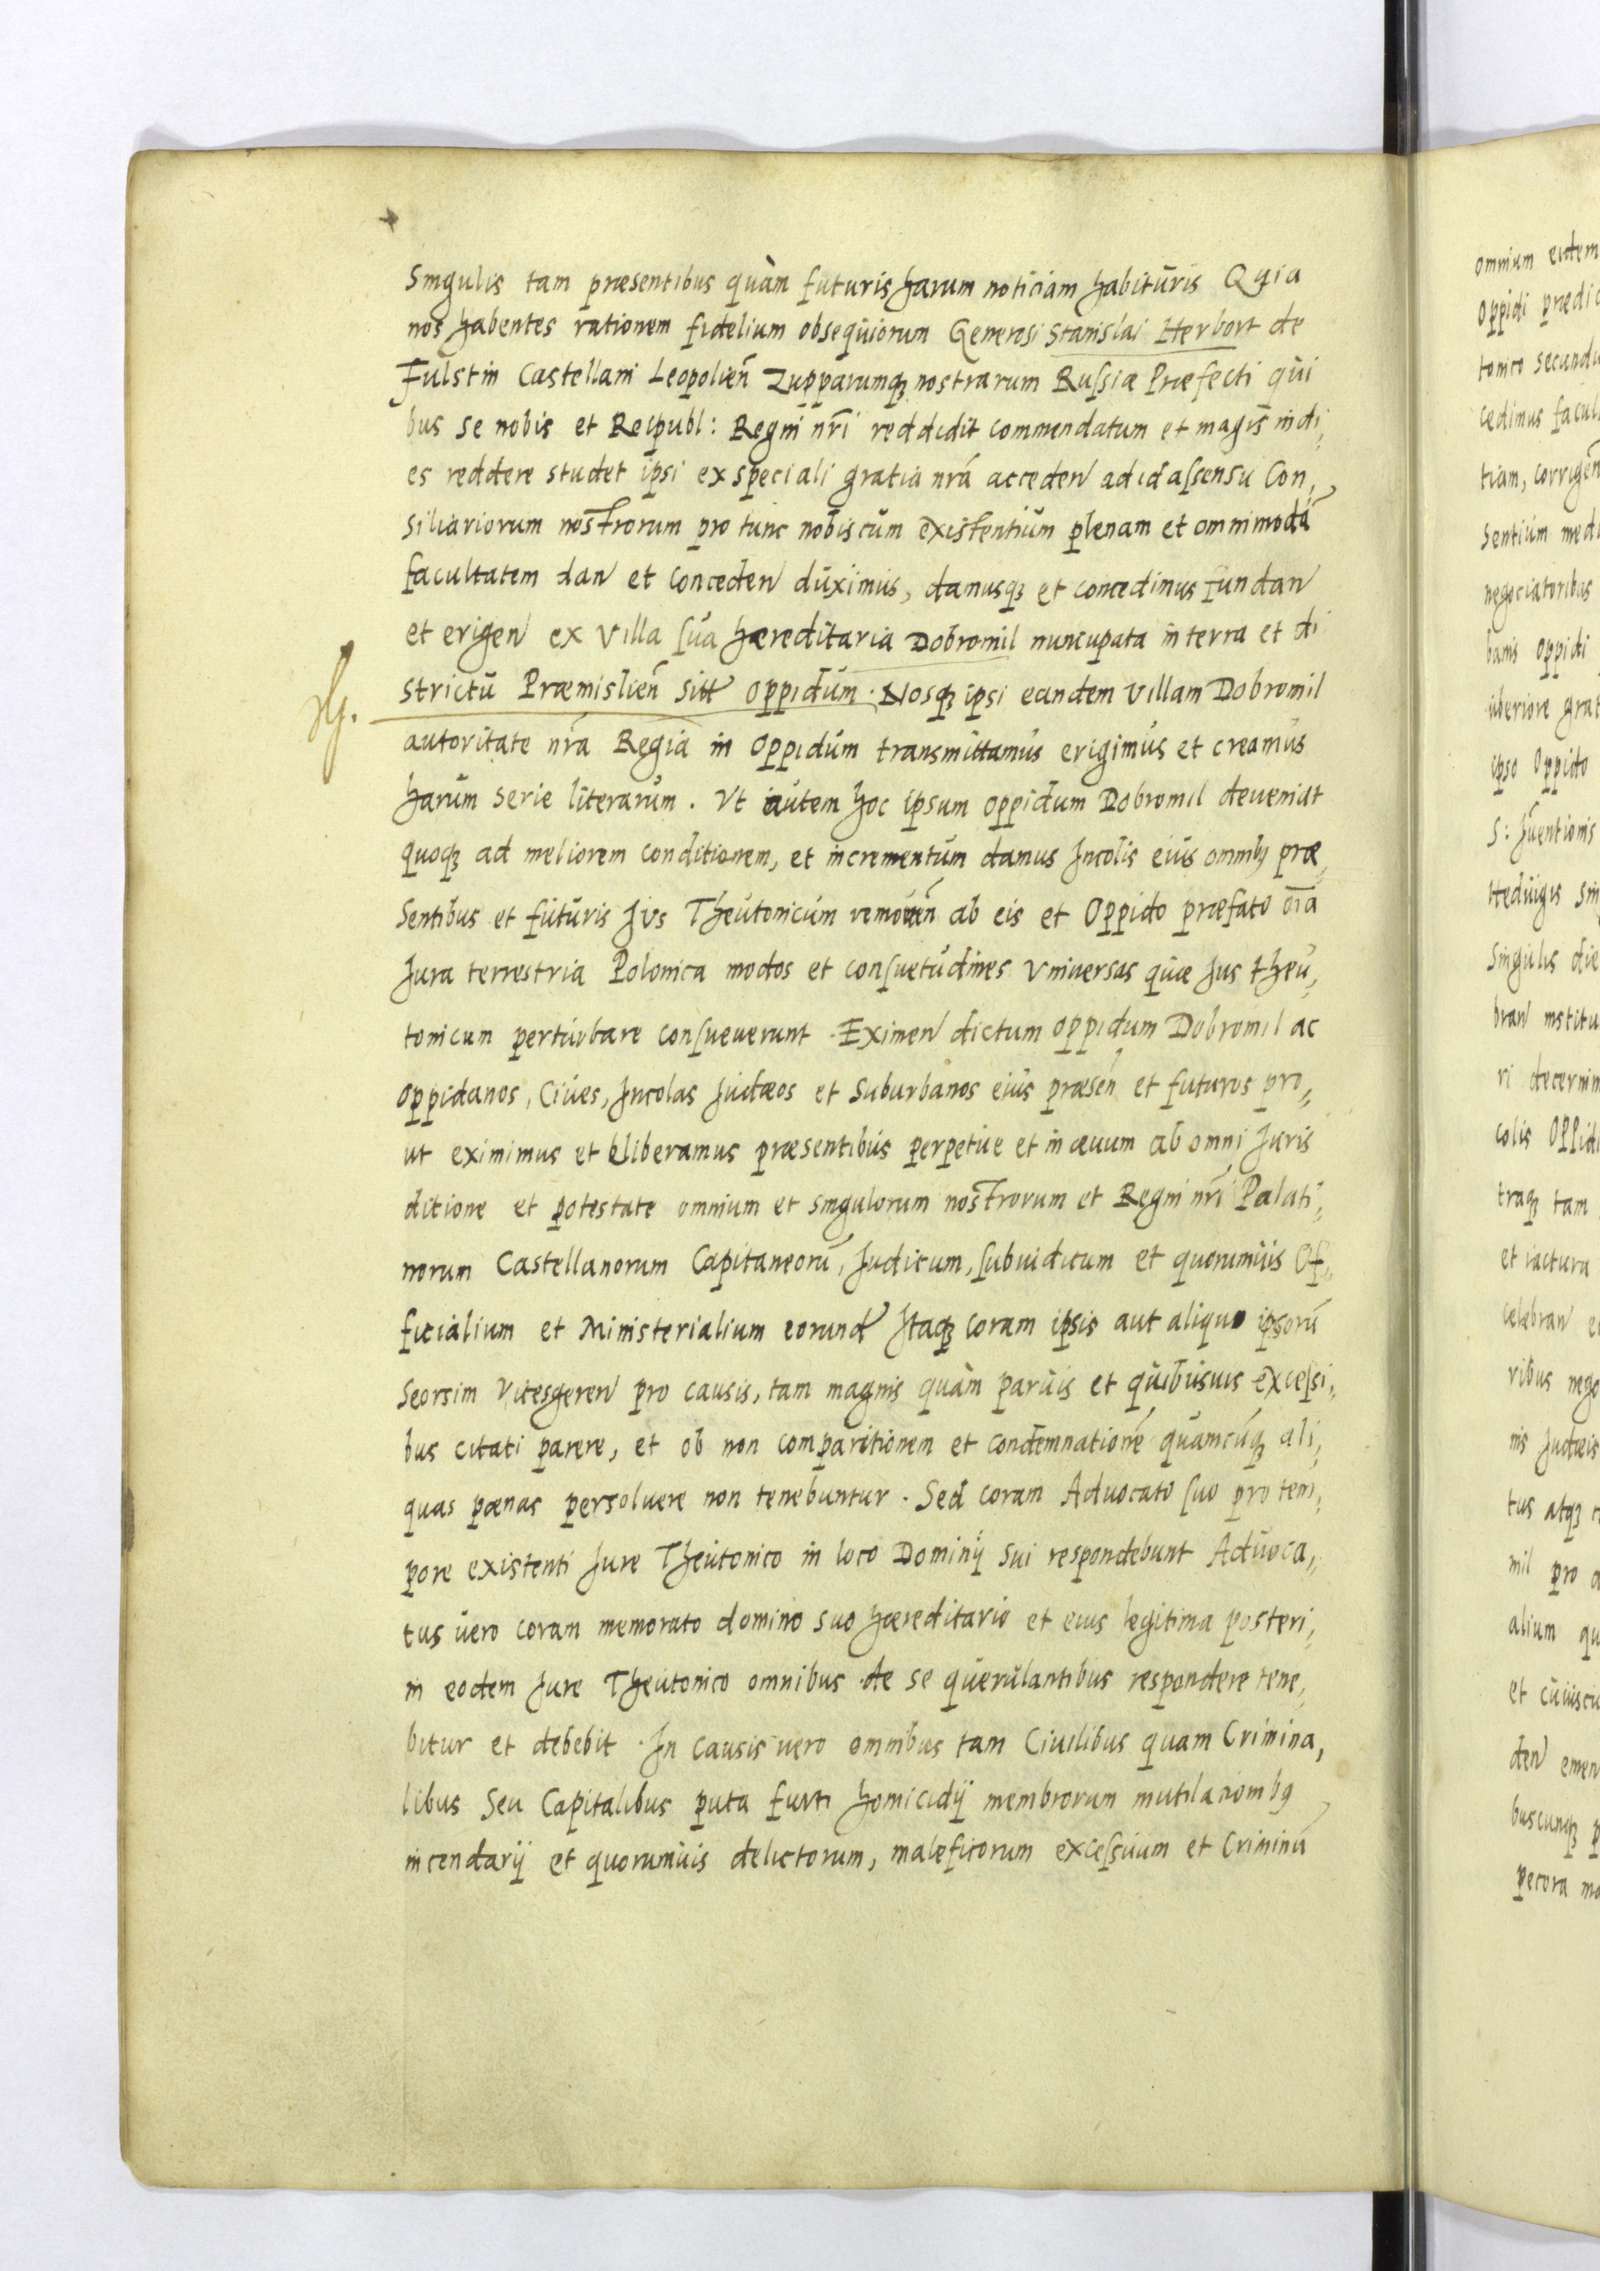 Singulis tam præsentibus quàm futuris harum noticiam habituris Quia
nos habentes rationem fidelium obsequiorum Generosi Stanislai Herbort de
Fulstin Castellani Leopolien̄ Zupparumq; nostrarum Russiæ Præfecti qui
bus se nobis et Reipubl: Regni nr̄i reddidit commendatum et magis indi,
es reddere studet ipsi ex speciali gratia nr̄a acceden̄ ad id assensu Con,
siliariorum nostrorum pro tunc nobiscum existentium plenam et omnimodā
facultatem dan̄ et conceden̄ duximus, damusq; et concedimus fundan̄
et erigen̄ ex Villa sua hæreditaria Dobromil nuncupata in terra et di
strictu Præmislien̄ sitt oppidum. Nosq; ipsi eandem villam Dobromil
autoritate nr̄a Regia in oppidum transmittamus erigimus et creamus
harum serie literarum. Vt autem hoc ipsum oppidum Dobromil deueniat
quoq; ad meliorem conditionem, et incrementum damus Incolis eius omnib; præ,
sentibus et futuris Jus Theutonicum remouen̄ ab eis et Oppido præfato oīa
Jura terrestria Polonica modos et consuetudines vniuersas quæ Jus theu,
tonicum perturbare consueuerunt. Eximen̄ dictum oppidum Dobromil ac
oppidanos, Ciues, Incolas Judæos et Suburbanos eius præsen̄ et futuros pro,
ut eximimus et liberamus præsentibus perpetue et in æuum ab omni Juris
ditione et potestate omnium et singulorum nostrorum et Regni nr̄i Palati,
norum Castellanorum Capitaneorū, Judicum, subiudicum et quorumuis Of,
ficialium et Ministerialium eorund Itaq; coram ipsis aut aliquo ipsorū
Seorsim Vicesgeren̄ pro causis, tam magnis quàm paruis et quibusuis excessi,
bus citati parere, et ob non comparitionem et condemnationē quamcūq; ali,
quas pœnas persoluere non tenebuntur. Sed coram Aduocato suo pro tem,
pore existenti Jure Theutonico in loco Dominij sui respondebunt Aduoca,
tus uero coram memorato domino suo hæreditario et eius legitima posteri,
in eodem Jure Theutonico omnibus de se querulantibus respondere tene,
bitur et debebit. In causis uero omnibus tam Ciuilibus quam Crimina,
libus Seu Capitalibus puta furti homicidij membrorum mutilationib;
incendarij et quorumuis delictorum, maleficorum excessuum et Criminū
omnium eidem
Oppidi prædic
tonico secundu
cedimus facul
tiam, corrigen̄
sentium med
negociatoribus
banis oppidi
uberiore grat
ipso Oppido
S: Juentionis
Heduigis sin
singulis die
bran̄ institu
ri decernim
colis Oppidi
traq; tam
et iactura
celebran̄ e
ribus nego
nis Judæis
tus atq; c
mil pro a
alium qu
et cuiuscu
den̄ emen
buscunq; p
pecora ma